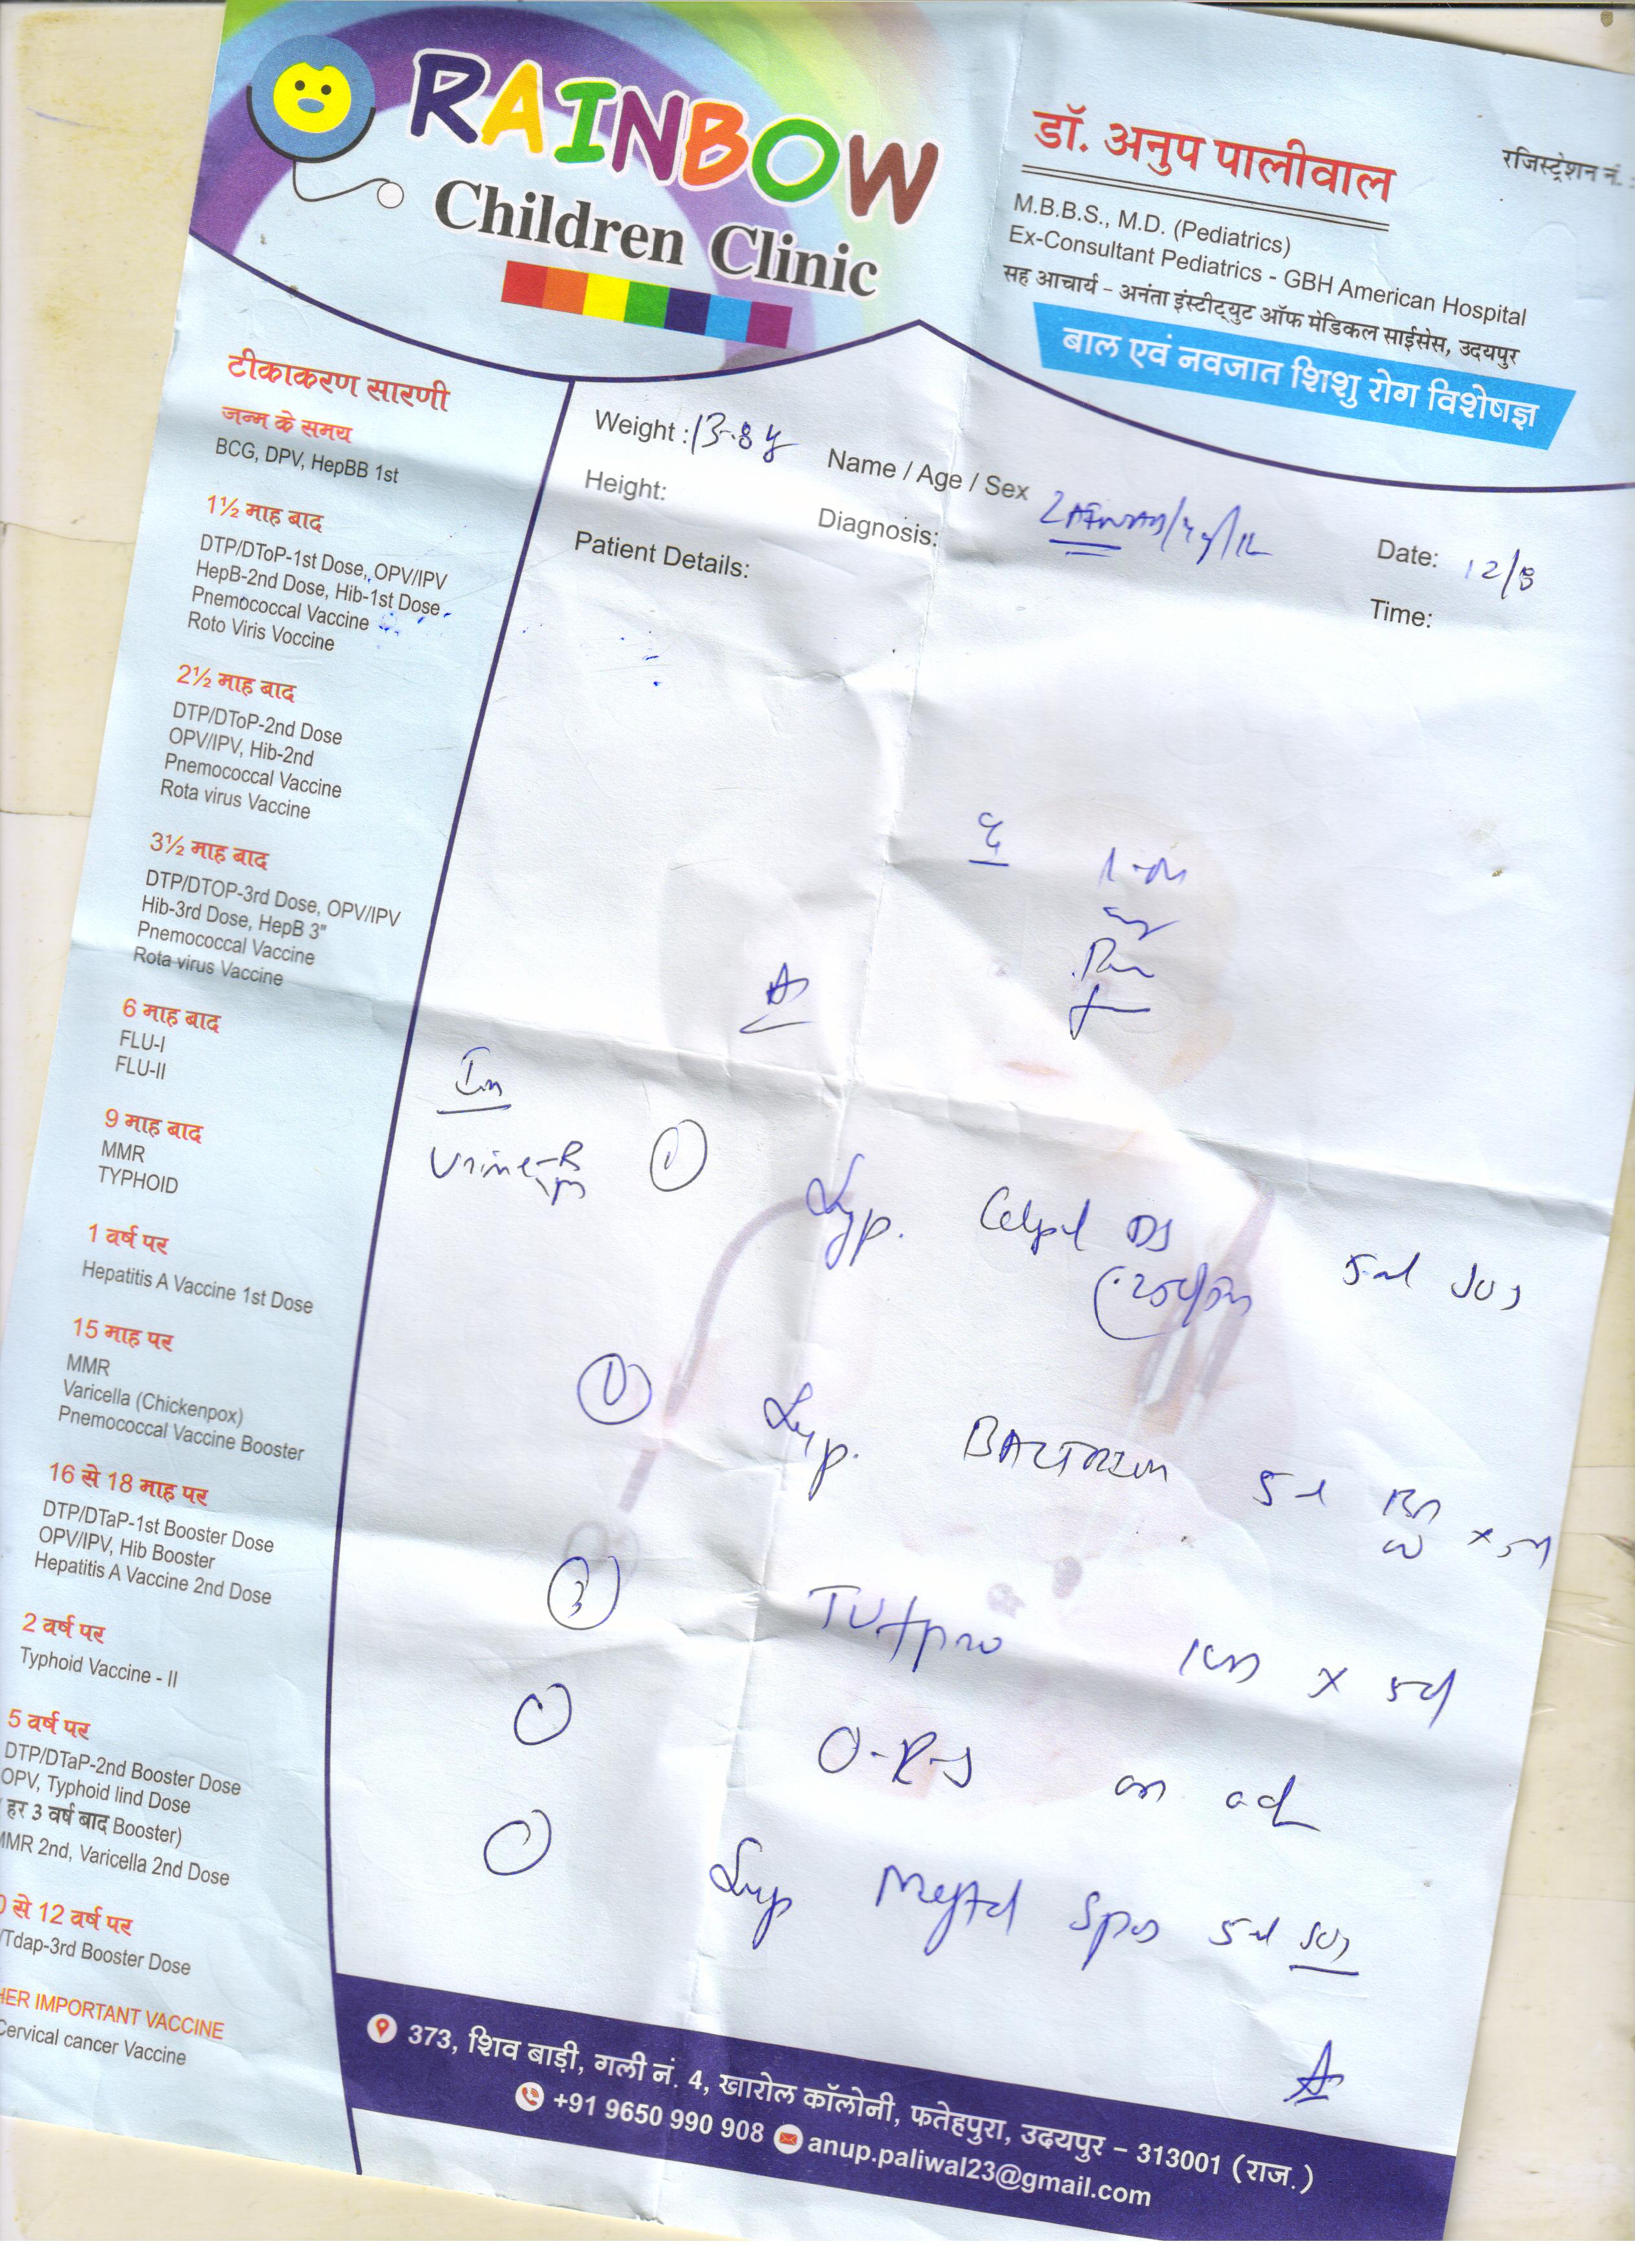 RAINBOW
Children Clinic
डॉ. अनुप पालीवाल
रजिस्ट्रेशन नं. :
M.B.B.S., M.D. (Pediatrics)
Ex-Consultant Pediatrics - GBH American Hospital
सह आचार्य - अनंता इंस्टीट्युट ऑफ मेडिकल साईसेस, उदयपुर
बाल एवं नवजात शिशु रोग विशेषज्ञ
टीकाकरण सारणी
जन्म के समय
BCG, DPV, HepBB 1st
1½ माह बाद
DTP/DToP-1st Dose, OPV/IPV
HepB-2nd Dose, Hib-1st Dose
Pnemococcal Vaccine
Roto Viris Voccine
2½ माह बाद
DTP/DToP-2nd Dose
OPV/IPV, Hib-2nd
Pnemococcal Vaccine
Rota virus Vaccine
3½ माह बाद
DTP/DTOP-3rd Dose, OPV/IPV
Hib-3rd Dose, HepB 3"
Pnemococcal Vaccine
Rota virus Vaccine
6 माह बाद
FLU-I
FLU-II
9 माह बाद
MMR
TYPHOID
1 वर्ष पर
Hepatitis A Vaccine 1st Dose
15 माह पर
MMR
Varicella (Chickenpox)
Pnemococcal Vaccine Booster
16 से 18 माह पर
DTP/DTaP-1st Booster Dose
OPV/IPV, Hib Booster
Hepatitis A Vaccine 2nd Dose
2 वर्ष पर
Typhoid Vaccine - II
5 वर्ष पर
DTP/DTaP-2nd Booster Dose
OPV, Typhoid lind Dose
हर 3 वर्ष बाद Booster)
MMR 2nd, Varicella 2nd Dose
0 से 12 वर्ष पर
/Tdap-3rd Booster Dose
HER IMPORTANT VACCINE
Cervical cancer Vaccine
Weight : 13.8 Name / Age / Sex
Height: Diagnosis: Date: 12/
Patient Details: Time:
Urine-R
Syp. DS 5ml SOS
Syp. BACTRIM 5ml
3 x 5d
O-R-S
Syp Spas 5ml SOS
373, शिव बाड़ी, गली नं. 4, खारोल कॉलोनी, फतेहपुरा, उदयपुर – 313001 (राज.)
+91 9650 990 908 anup.paliwal23@gmail.com